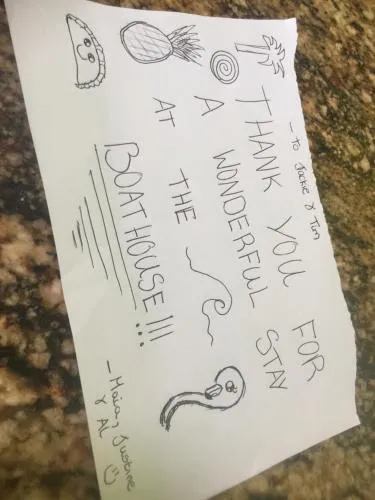 - To Jackie & Tim
THANK YOU FOR
A WONDERFUL STAY
AT THE
BOATHOUSE!!!
& AL